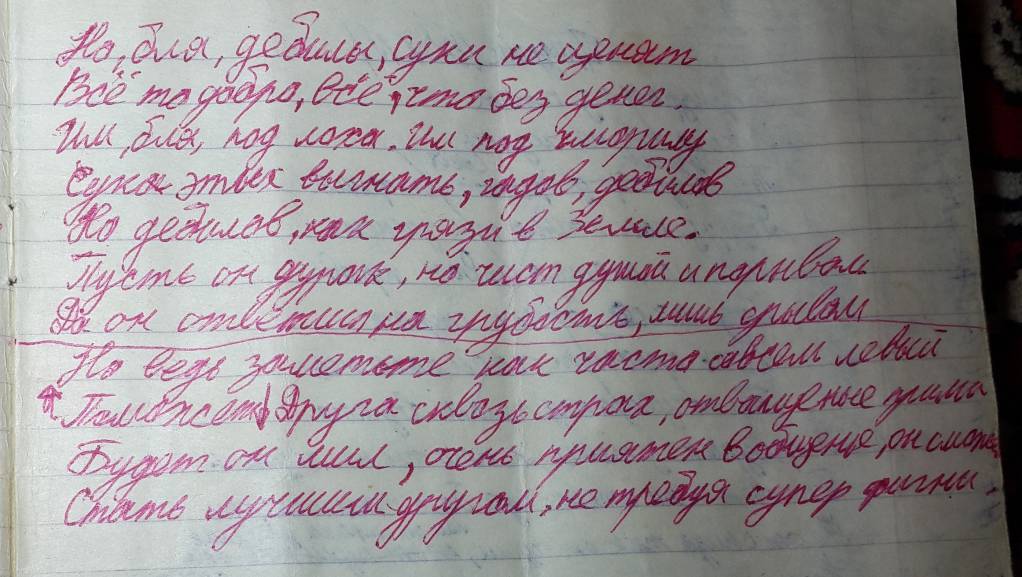 Но, бля, дебилы, суки не ценят
Всё то добро, всё, что без денег.
Им, бля, под лоха. Им под чморилу
Сука этих выгнать, гадов, дебилов
Но дебилов, как грязи в Земле.
Пусть он дурак, но чист душой и порывом
Да он ответил на грубость, лишь срывом
Но ведь заметьте как часто совсем левый
Поможет Друга сквозь страх,
Будет он мил, очень приятен в общение, он сможет
Стать лучшим другом, не требуя супер фигни.